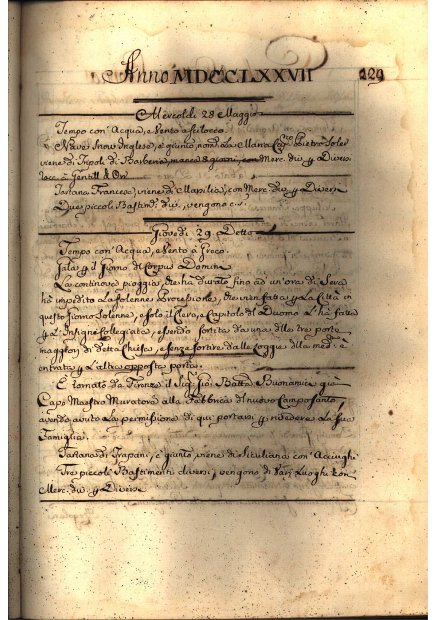 Anno MDCCLXXVII 129
Mercoldì 28 Maggio
Tempo con Acqua, e Vento a Scilocco
Nave Inglese, è giunto, nom. La Mama, Cap.no Pietro Soler
viene di Tripoli di Barberia, manca 8 giorni, con Merc. div. p Diversi
Tartana Francese, viene di Marsilia, con Merc. div. p Diversi
Due piccoli Bastim.ti div., vengono c. s.
Giovedì 29. Detto
Tempo con Acqua, e Vento a Greco.
Gala p il Giorno di Corpus Domini
La continova pioggia, che ha durato fino ad un'ora di Sera
ha impedito La solenne Processione, che vien fatta p La Città in
questo giorno solenne, e solo il Clero, e Capitolo di Duomo L'ha fatta
p L'Insigne Collegiata, essendo sortita da una delle tre porte
maggiori di detta Chiesa, e senza sortire dalle Loggie della med.a è
entrata p L'altra opposta porta.
È tornato da Firenze il Sig. Gio. Batta Buonamici già
Capo Maestro Muratore alla Fabbrica di nuovo Camposanto,
avendo avuto La permissione di qui portarsi p rivedere La sua
Famiglia.
Tartana di Trapani, è giunto, viene di Siciliana con Acciughe
Tre piccoli Bastimenti diversi, vengono di Varj Luoghi con
Merc. div. p Diversi